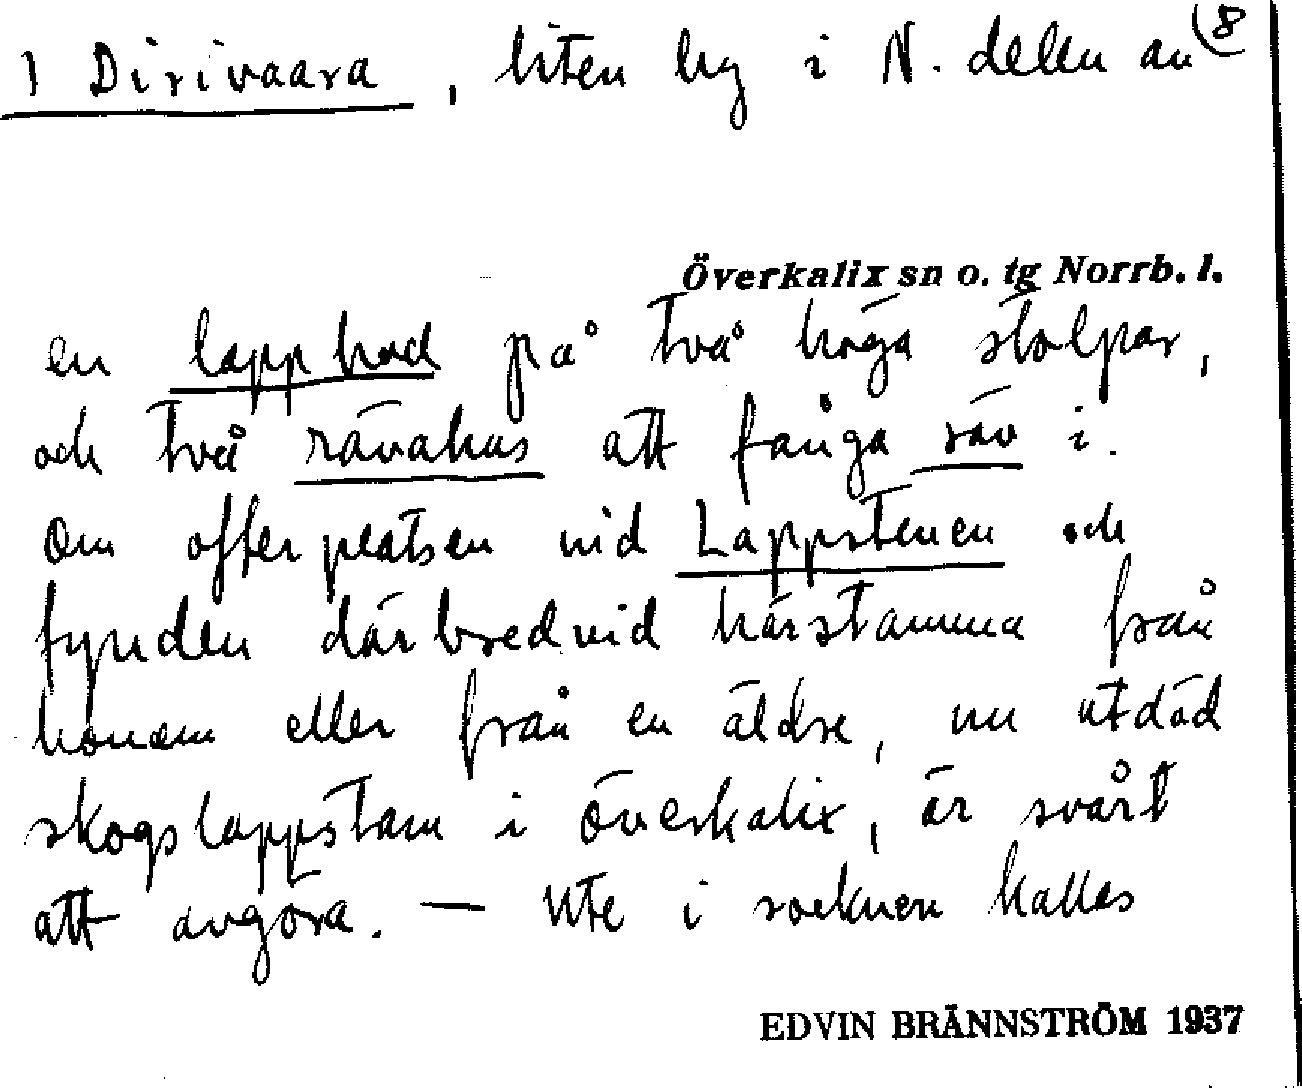 ) Dirivaara, liten by i N. delen av (8
Överkalix sn o. tg Norrb. l.
en lappbod på två höga stolpar,
och två rävahus att fånga räv i.
Om offerplatsen vid Lappstenen och
fynden därbredvid härstamma från
honom eller från en äldre, nu utdöd
skogslappstam i Överkalix, är svårt
att avgöra. — Ute i socknen kallas
EDVIN BRÄNNSTRÖM 1937